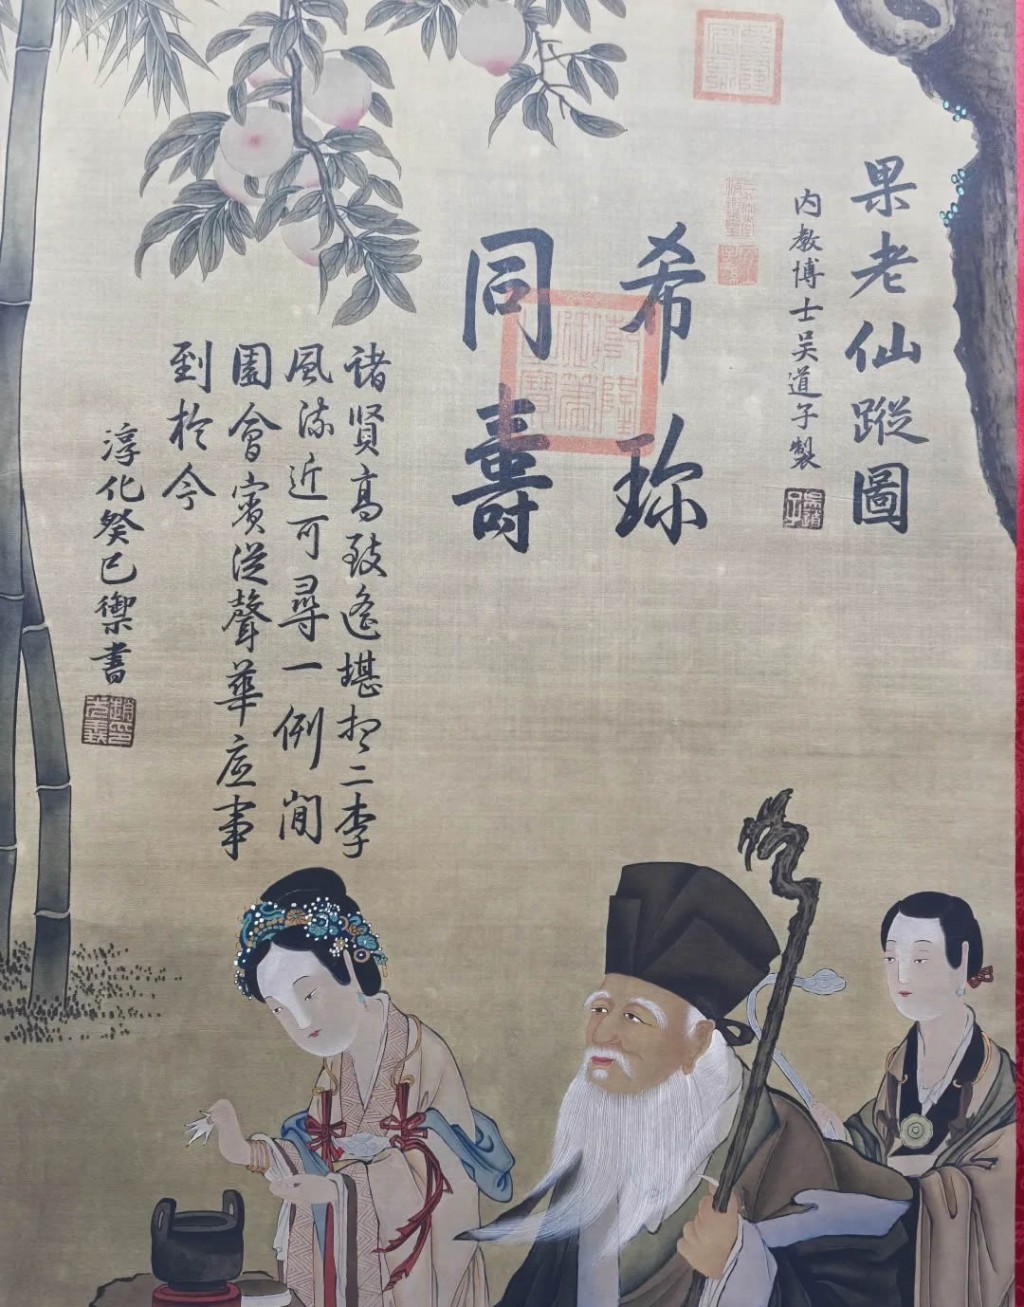 果老仙蹤圖
内教博士吴道子製
希珍
同壽
諸賢高致遙堪想二李
風流近可尋一例閒
園會賓從聲華应事
到於今
淳化癸巳禦書